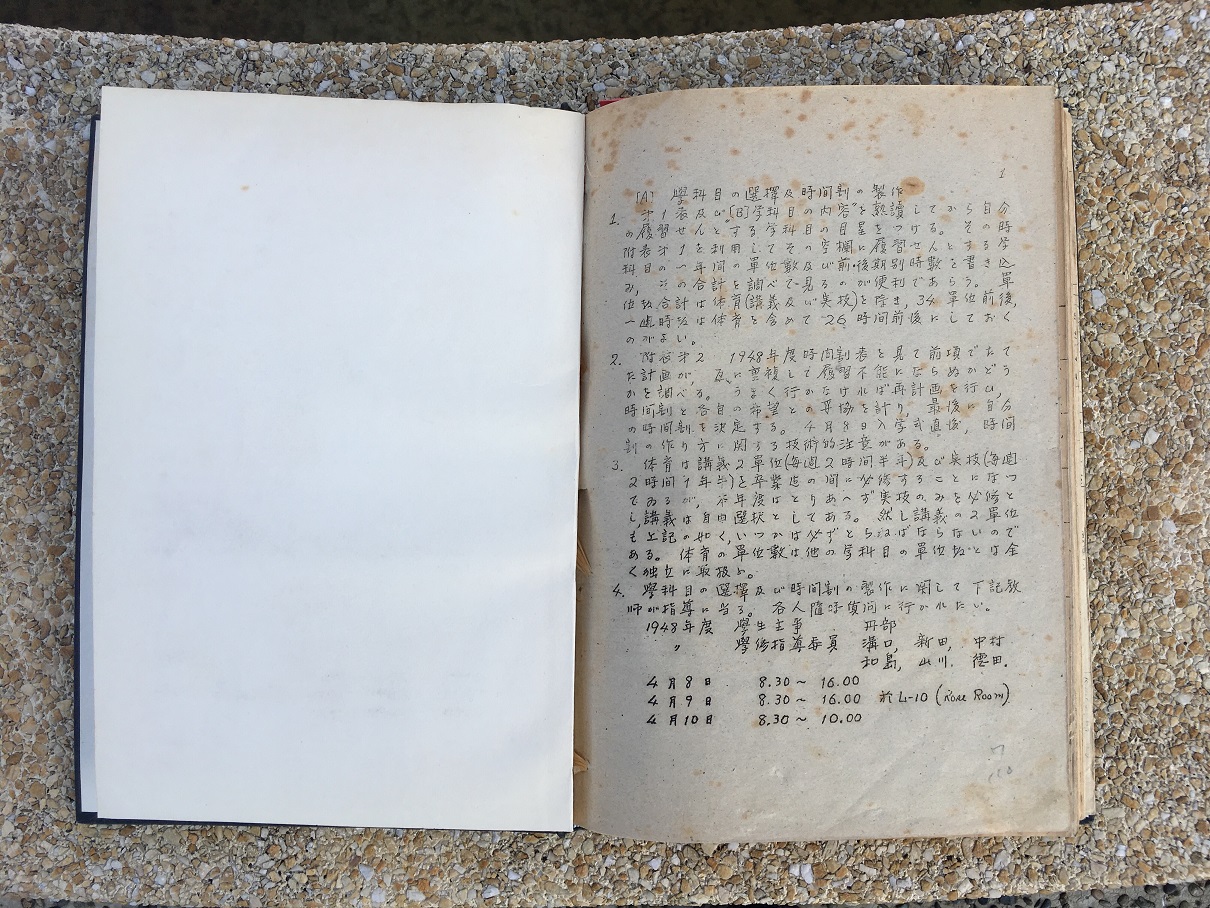 1
[A] 學科目の選擇及時間割の製作
1. 才1表及び[B]学科目の内容を熟讀してから自分
の履習せんとする学科目の目星をつける。その時
附表才1を利用してその空欄に履習せんとする学
科目の一年間の單位數及び前・後期別時數を書き込
み, その合計を調べて見るのが便利であらう。單
位数合計は体育(講義及び実技)を除き, 34單位前後,
時数は体育を含めて26時間前後にしておく
のがよい。
2. 附表才2 1948年度時間割表を見て前項でたて
た計画が, 互に重複して履習不能にならぬかどう
かを調べる。うまく行かなければ再計画を行ひ,
時間割と各自の希望との妥協を計り, 最後に自分
の時間割を決定する。4月8日入学式直後, 時間
割の作り方に関する技術的注意がある。
3. 体育は講義2單位(每週2時間半年)及び実技(每週
2時間1年半)を卒業迄の間に必修することになつ
てゐるが, 本年度はとりあへず実技のみを必修と
し, 講義は自由選択としてある。然し講義の2單位
も上記の如く, いつかは必ずとらねばならないので
ある。体育の單位數は他の学科目の單位数とは全
く独立に取扱ふ。
4. 學科目の選擇及び時間割の製作に関して下記教
師が指導に当る。各人隨時質問に行かれたい。
1948年度 學生主事 丹部
〃 學修指導委員 溝口, 新田, 中村
和島, 山川, 德田.
4月8日 8.30〜16.00
4月9日 8.30〜16.00 於 L-10 (Rose Room)
4月10日 8.30〜10.00